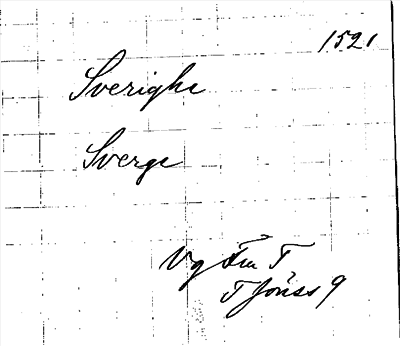 1521
Sverighe
Sverge
Vg Fra T
T Jönss 9